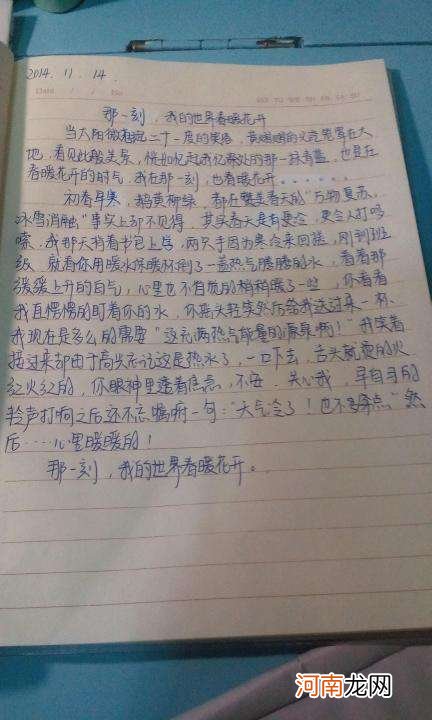 2014.11.14.
Date / / No
那一刻,我的世界春暖花开
当太阳微有近二十一度的笑唇,黄暖暖的光芒笼罩在大
地,看见此般美景,恍如忆起我忆深处的那一抹青蓝,也是在
春暖花开的时气,我在那一刻,也春暖花开……
初春早寒,鹅黄柳绿,都在赞美春天的"万物复苏,
冰雪消融"事实上却不见得,其实春天是有更冷,更令人打哆
嗦,我那天背着书包上学,两只手因为寒冷来回搓,刚到班
级,就看你用暖水保暖杯倒了一盖热气腾腾的水,看着那
缓缓上升的白气,心里也不自觉的稍稍暖了一些,你看着
我直愣愣的盯着你的水,你无奈轻笑然后给我送过来一杯.
我现在是多么的需要"这充满热气能量的源泉啊!"我笑着
接过来却由于高兴忘记这是热水了,一口下去,舌头就烫的火
红火红的,你眼神里透着焦急,不安,关心我,早自习的
铃声打响之后还不忘嘱咐一句:"天气冷了!也不多穿点"然
后……心里暖暖的!
那一刻,我的世界春暖花开。
河南龙网